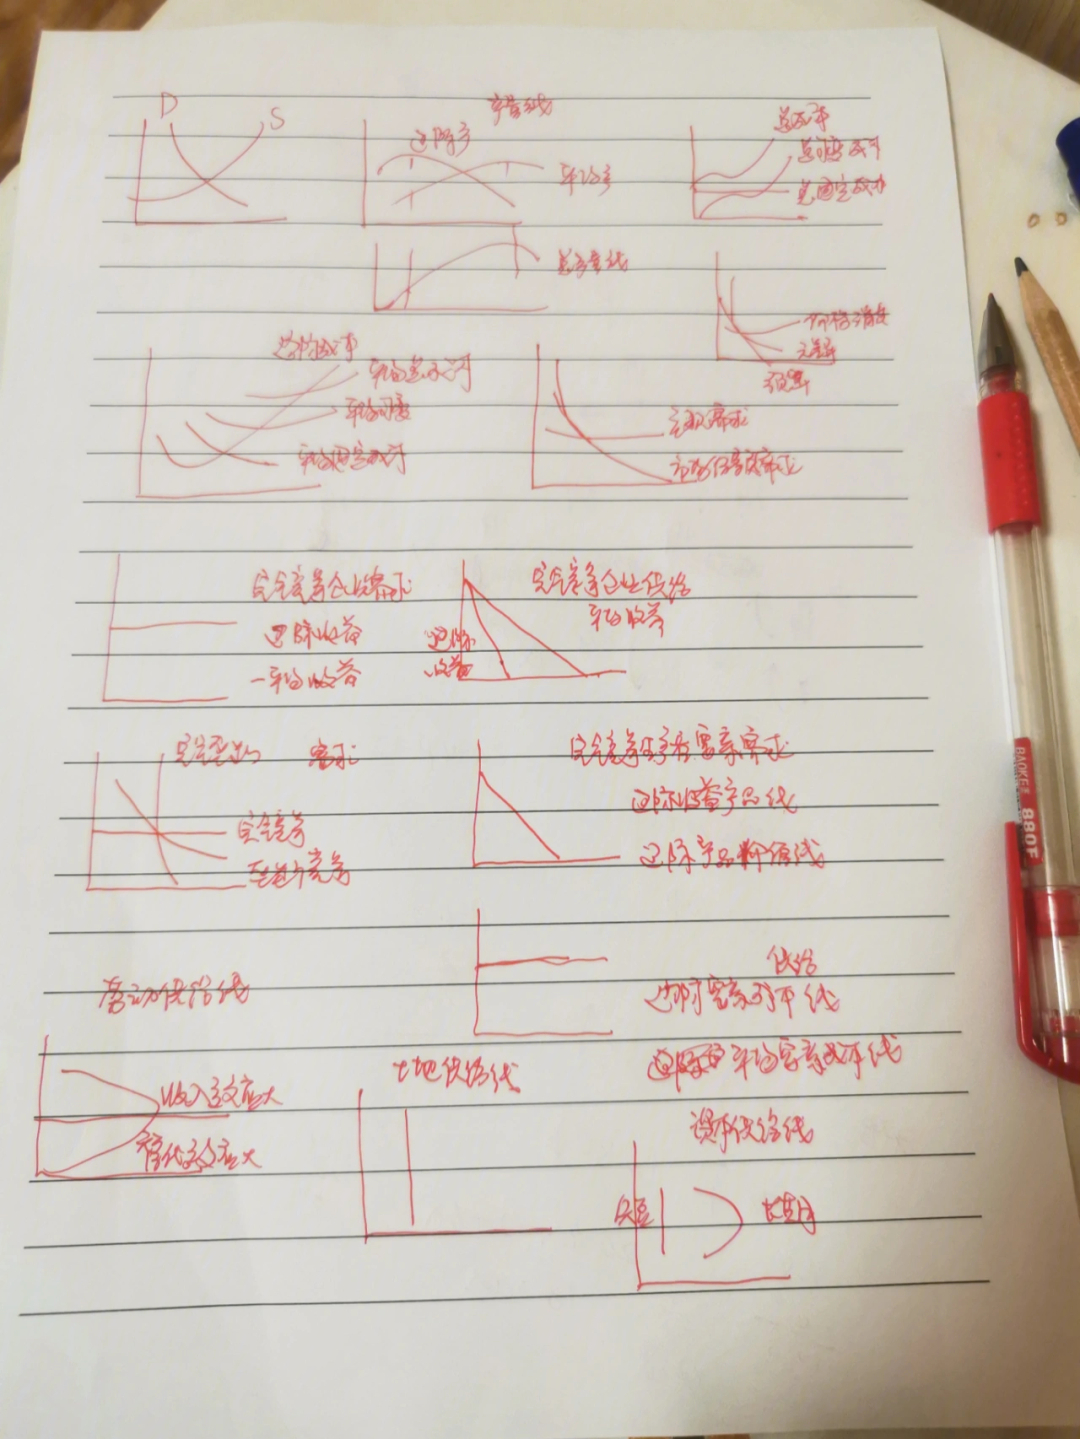 D
S
产量线
边际产
平均产
总成本
总可变成本
总固定成本
总产量线
无差异
预算
边际成本
平均总成本
平均可变
平均固定成本
主观需求
市场份额需求
完全竞争企业需求
边际收益
平均收益
边际
收益
完全竞争企业供给
平均收益
完全垄断
需求
完全竞争
垄断竞争
完全竞争生产者要素需求
边际收益产品线
边际产品价值线
供给
边际要素成本线
平均要素成本线
劳动供给线
收入效应大
替代效应大
土地供给线
资本供给线
短
长期
BAOKE
880F